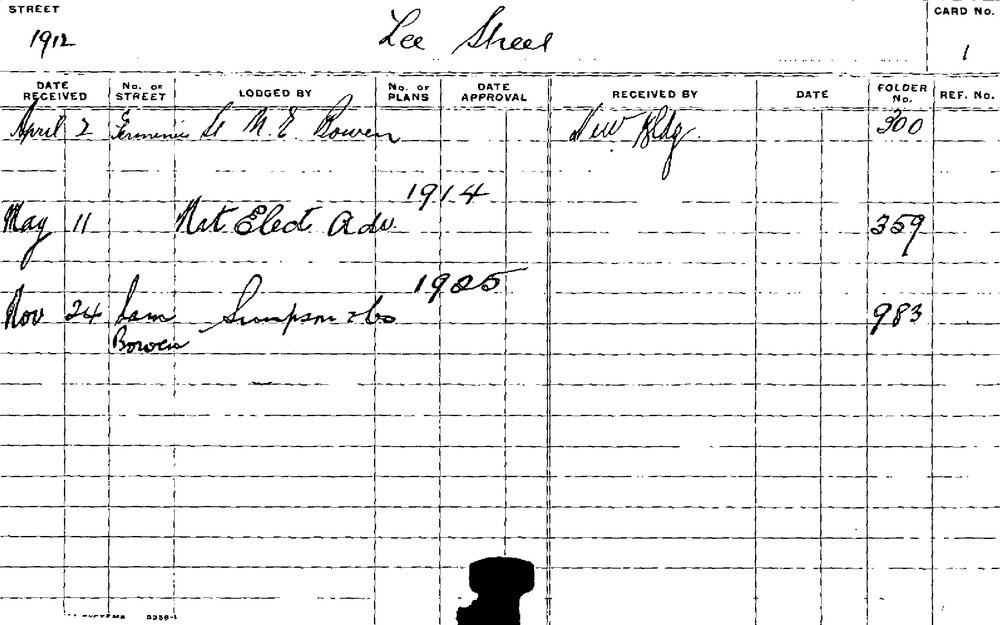 STREET
CARD No.
1912
Lee Street
1
DATE RECEIVED No. OF STREET LODGED BY No. OF PLANS DATE APPROVAL RECEIVED BY DATE FOLDER No. REF. No.
April 2 St M. E. Bowen New Bldg. 300
1914
May 11 Nat Elect Adv. 359
1925
Nov 24 Sam Simpson & Co 983
Bowen
5356-1